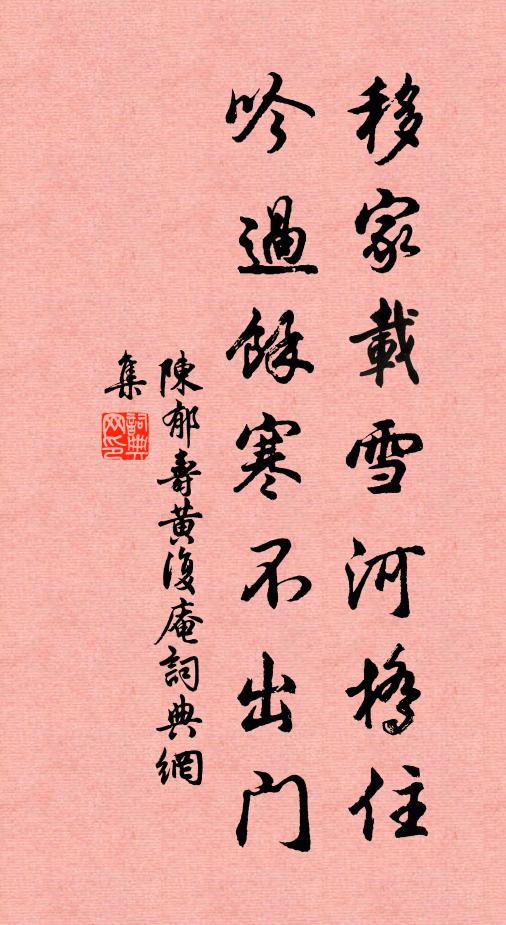 移家載雪河橋住
吟過餘寒不出門
陳郁壽黃復庵詞典網
集
詞典网印